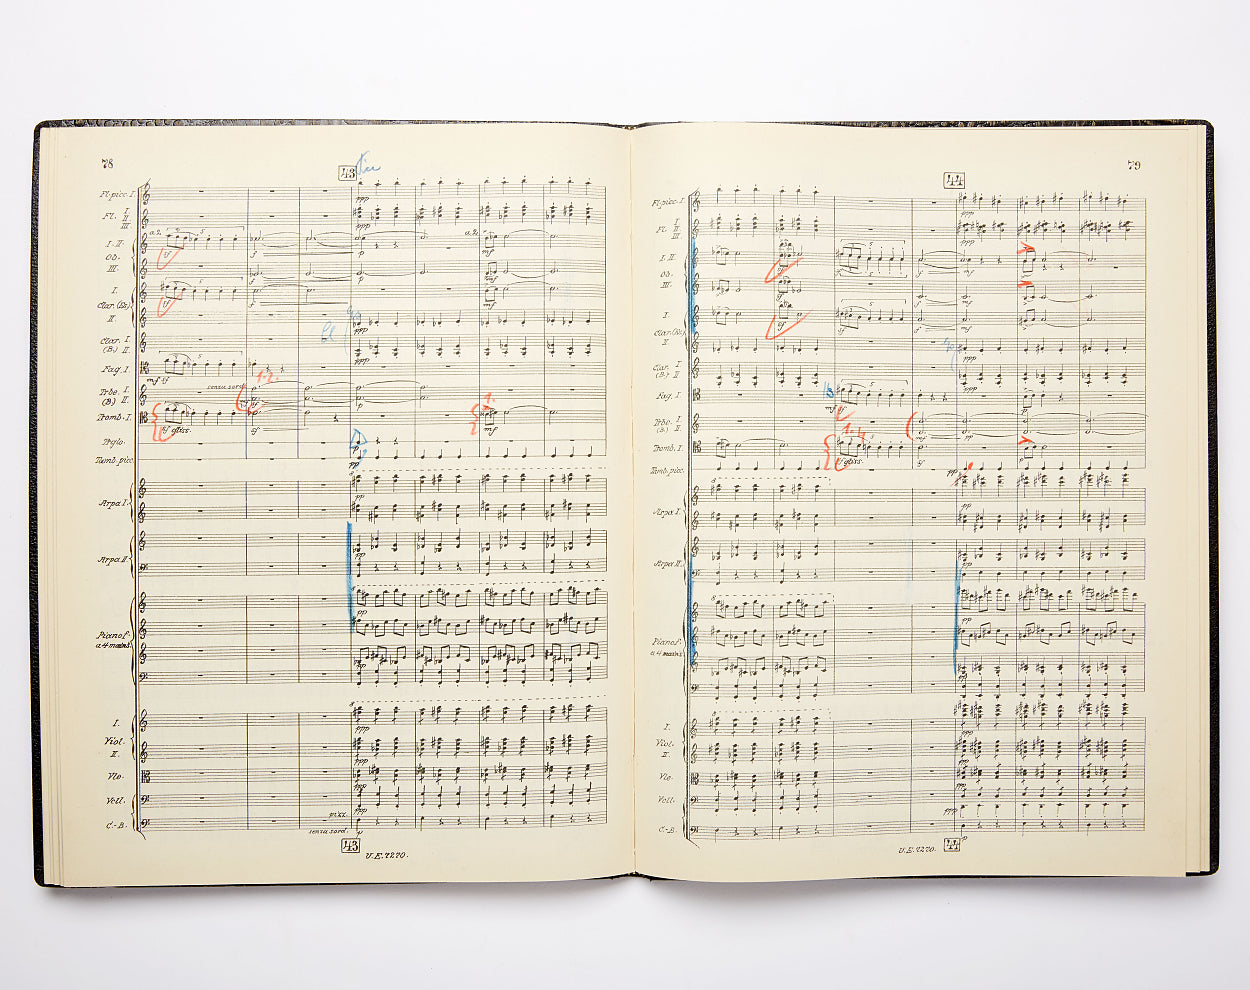 78
43
Fl. picc. I.
Fl. I. II III
a 2.
I. II.
Ob.
III.
I.
Clar. (Es)
II
Clar. I.
(B) II.
Fag. I.
mf sf
senza sord.
1.2.
Trbe. I.
(B) II.
Tromb. I.
sf gliss.
sf
1.
mf
Trglo.
Tamb. picc.
ppp
pp
Arpa I.
Arpa II.
Pianof.
a 4 mains.
I.
Viol.
II.
Vle.
Vcll.
C.-B.
pizz.
senza sord.
p
43
U.E. 7270.
79
44
Fl. picc. I.
I
Fl. II
III
I. II.
Ob.
III.
I.
Clar. (Es)
II
Clar. I.
(B) II.
Fag. I.
mf sf
Trbe. I
(B) II.
Tromb. I.
sf gliss.
sf
Tamb. picc.
pp
Arpa I.
Arpa II.
Pianof.
a 4 mains
I.
Viol.
II.
Vle.
Vcll.
C.-B.
ppp
p
U.E. 7270.
44